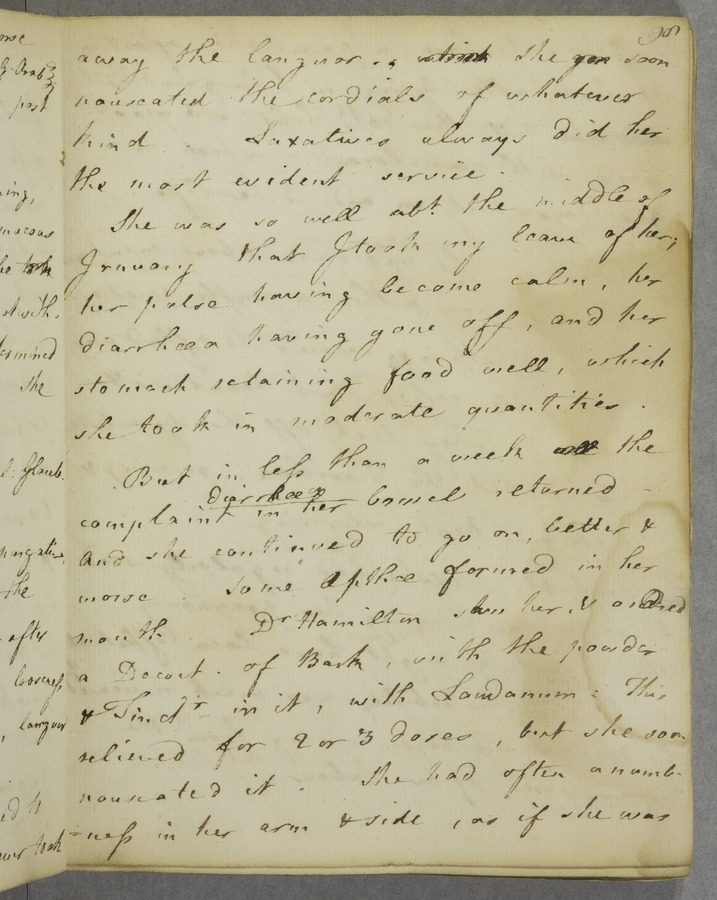 98
away the languor. , which she soon
nauseated the cordials of whatever
kind. Laxatives always did her
the most evident service.
She was so well abt. the middle of
January that I took my leave of her;
her pulse having become calm, her
diarrhœa having gone off, and her
stomach retaining food well, which
she took in moderate quantities.
But in less than a week all the
diarrhœa
complaint in her bowel returned -
And she continued to go on, better &
worse. Some Apthæ formed in her
mouth Dr Hamilton saw her, & ordered
a Decoct. of Bark, with the powder
& Tinctr in it, with Laudanum: This
relieved for 2 or 3 doses, but she soon
nauseated it. She had often a numb-
-ness in her arm & side, as if she was